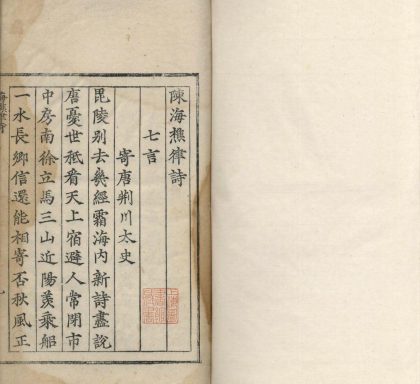 陳海樵律詩
七言
寄唐荆川太史
毘陵別去幾經霜海内新詩盡說
唐憂世秖看天上宿避人常閉市
中房南徐立馬三山近陽羨乘船
一水長鄉信還能相寄否秋風正